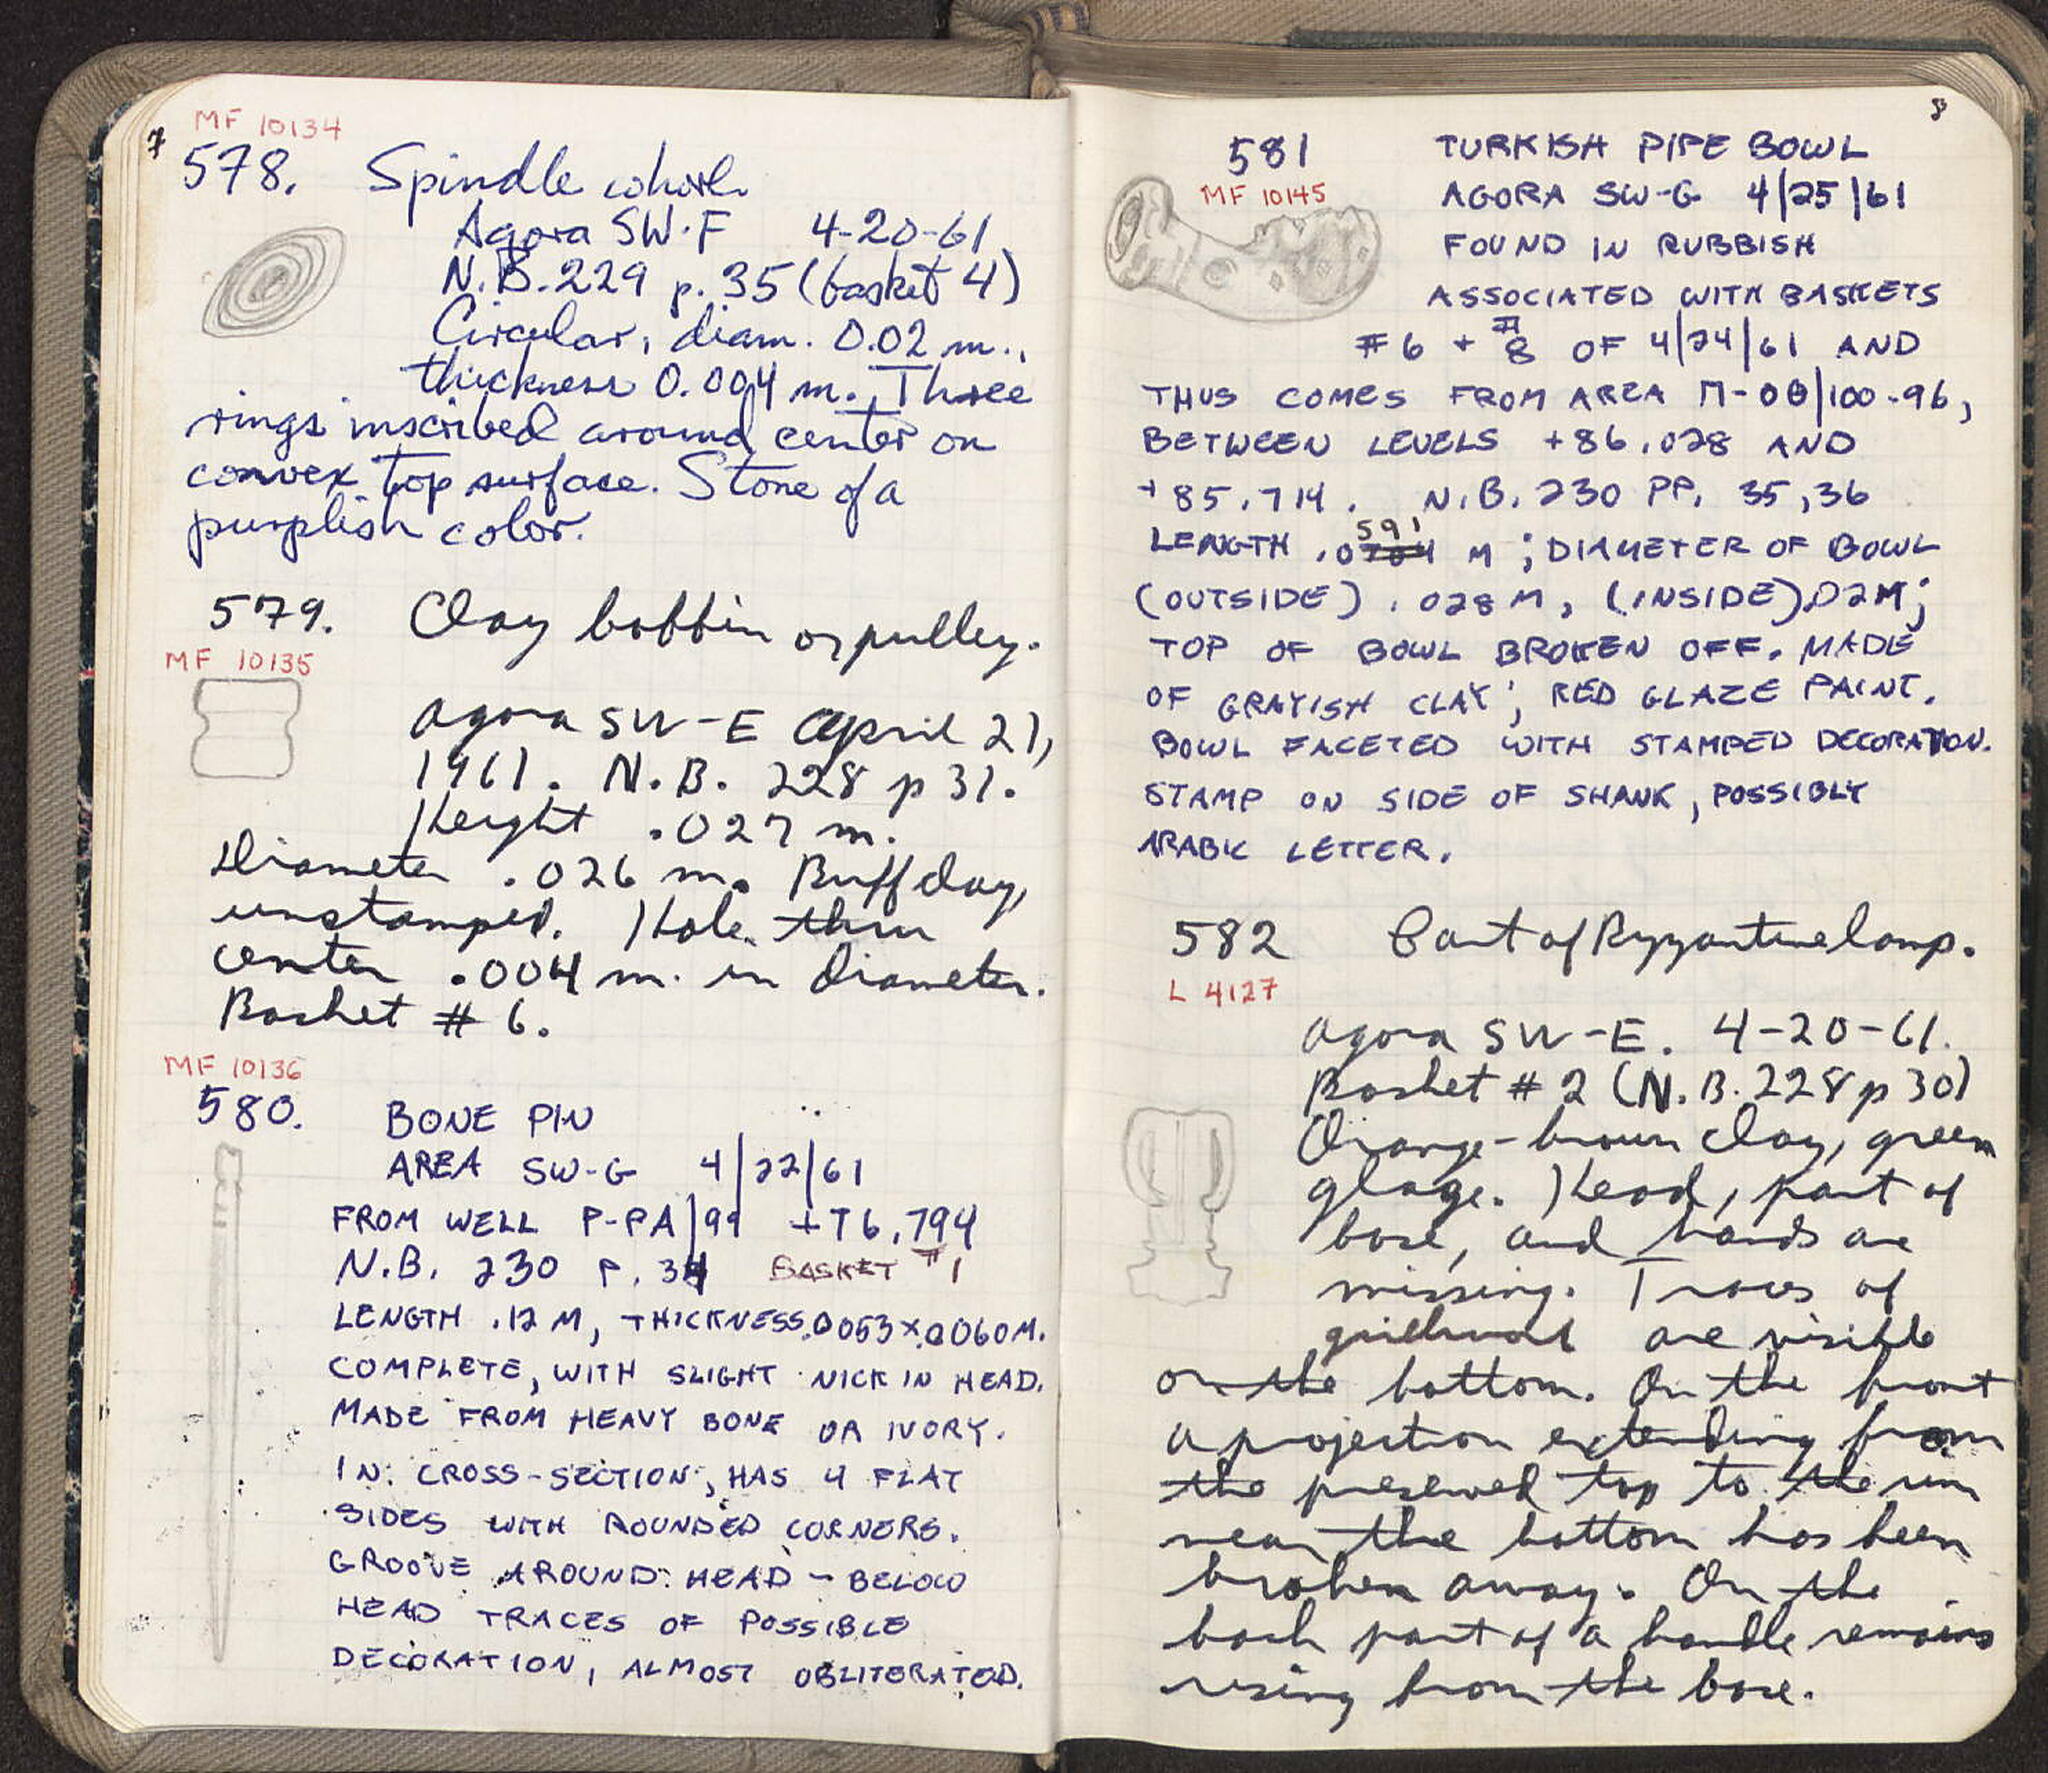 7
MF 10134
578. Spindle whorl.
Agora SW-F 4-20-61
N.B. 229 p. 35 (basket 4)
Circular, diam. 0.02 m.,
thickness 0.004 m. Three
rings inscribed around center on
convex top surface. Stone of a
purplish color.
579. Clay bobbin or pulley.
MF 10135
Agora SW-E April 21,
1961. N.B. 228 p 31.
Height .027 m.
Diameter .026 m. Buff clay,
unstamped. Hole thru
center .004 m. in diameter.
Basket # 6.
MF 10136
580. BONE PIN
AREA SW-G 4/22/61
FROM WELL P-PA/99 +76.794
N.B. 230 P. 34 BASKET #1
LENGTH .12 M, THICKNESS .0053 x .0060 M.
COMPLETE, WITH SLIGHT NICK IN HEAD.
MADE FROM HEAVY BONE OR IVORY.
IN CROSS-SECTION, HAS 4 FLAT
SIDES WITH ROUNDED CORNERS.
GROOVE AROUND HEAD - BELOW
HEAD TRACES OF POSSIBLE
DECORATION, ALMOST OBLITERATED.
8
581 TURKISH PIPE BOWL
MF 10145
AGORA SW-G 4/25/61
FOUND IN RUBBISH
ASSOCIATED WITH BASKETS
#6 + #8 OF 4/24/61 AND
THUS COMES FROM AREA Π-ΟΘ/100-96,
BETWEEN LEVELS +86.028 AND
+85.714. N.B. 230 PP. 35,36
LENGTH .0591 M; DIAMETER OF BOWL
(OUTSIDE) .028 M, (INSIDE) .02M;
TOP OF BOWL BROKEN OFF. MADE
OF GRAYISH CLAY; RED GLAZE PAINT.
BOWL FACETED WITH STAMPED DECORATION.
STAMP ON SIDE OF SHANK, POSSIBLY
ARABIC LETTER.
582 Part of Byzantine lamp.
L 4127
Agora SW-E. 4-20-61.
Basket # 2 (N.B. 228 p 30)
Orange-brown clay, green
glaze. Head, part of
base, and hands are
missing. Traces of
are visible
on the bottom. On the front
a projection extending from
the preserved top to the rim
near the bottom has been
broken away. On the
back part of a handle remains
rising from the base.